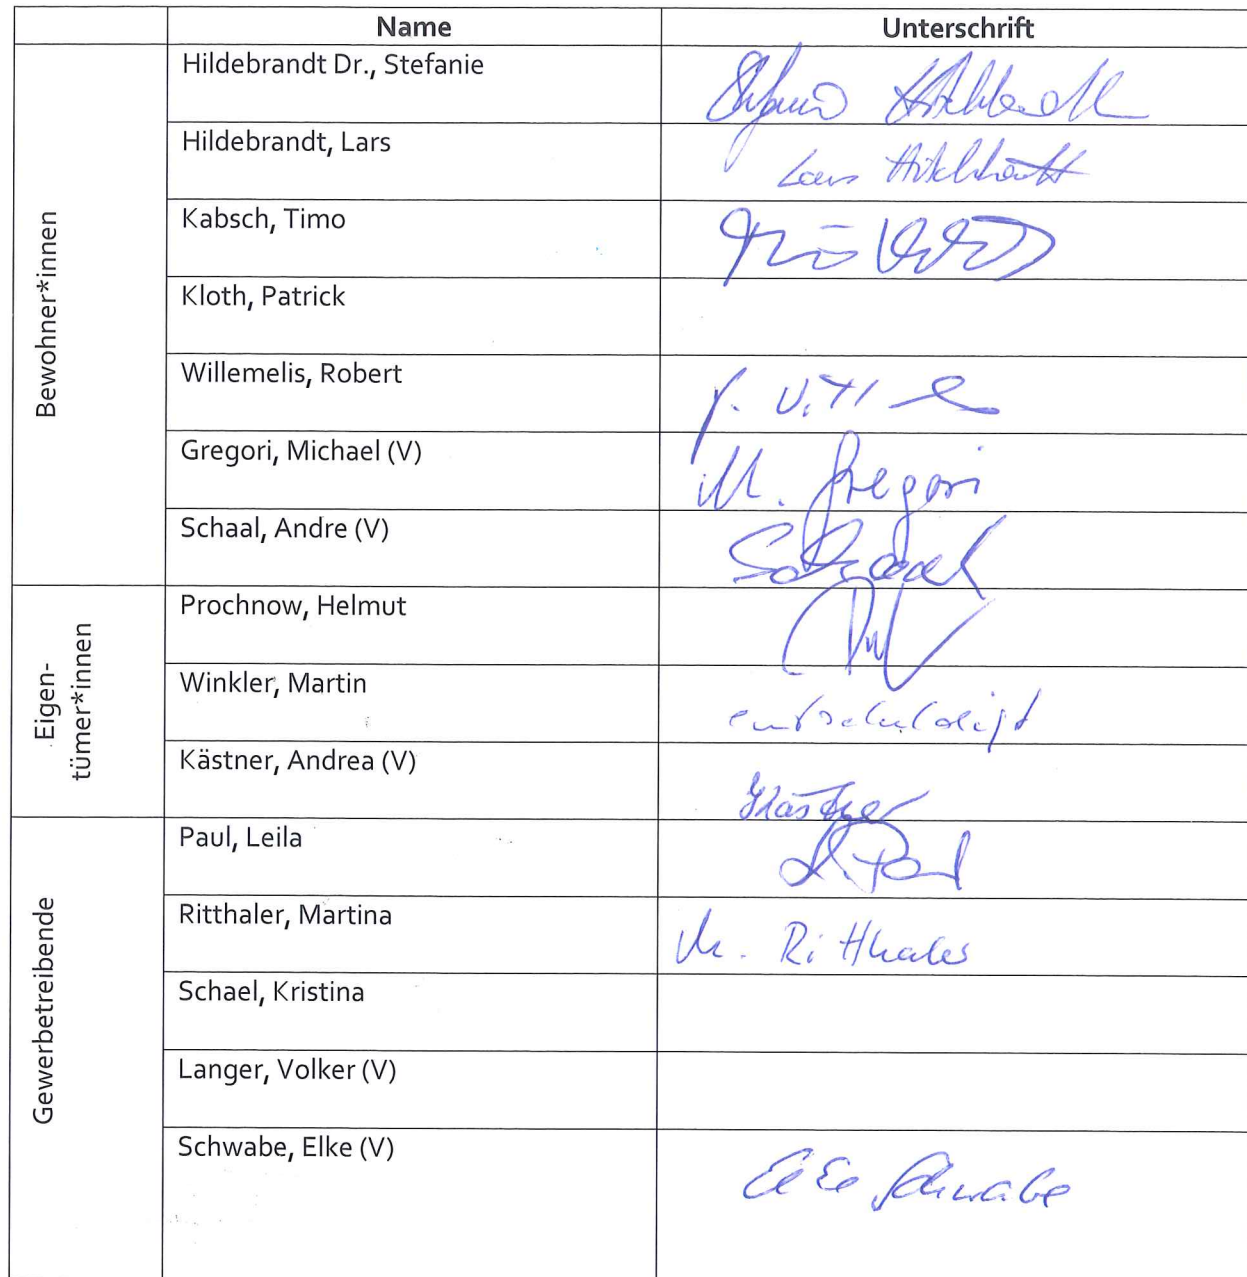 Name Unterschrift
Bewohner*innen
Hildebrandt Dr., Stefanie
Hildebrandt, Lars Lars
Kabsch, Timo
Kloth, Patrick
Willemelis, Robert
Gregori, Michael (V) M. Gregori
Schaal, Andre (V)
Eigen-
tümer*innen
Prochnow, Helmut
Winkler, Martin entschuldigt
Kästner, Andrea (V) Kästner
Gewerbetreibende
Paul, Leila L. Paul
Ritthaler, Martina M. Ritthaler
Schael, Kristina
Langer, Volker (V)
Schwabe, Elke (V) Elke Schwabe